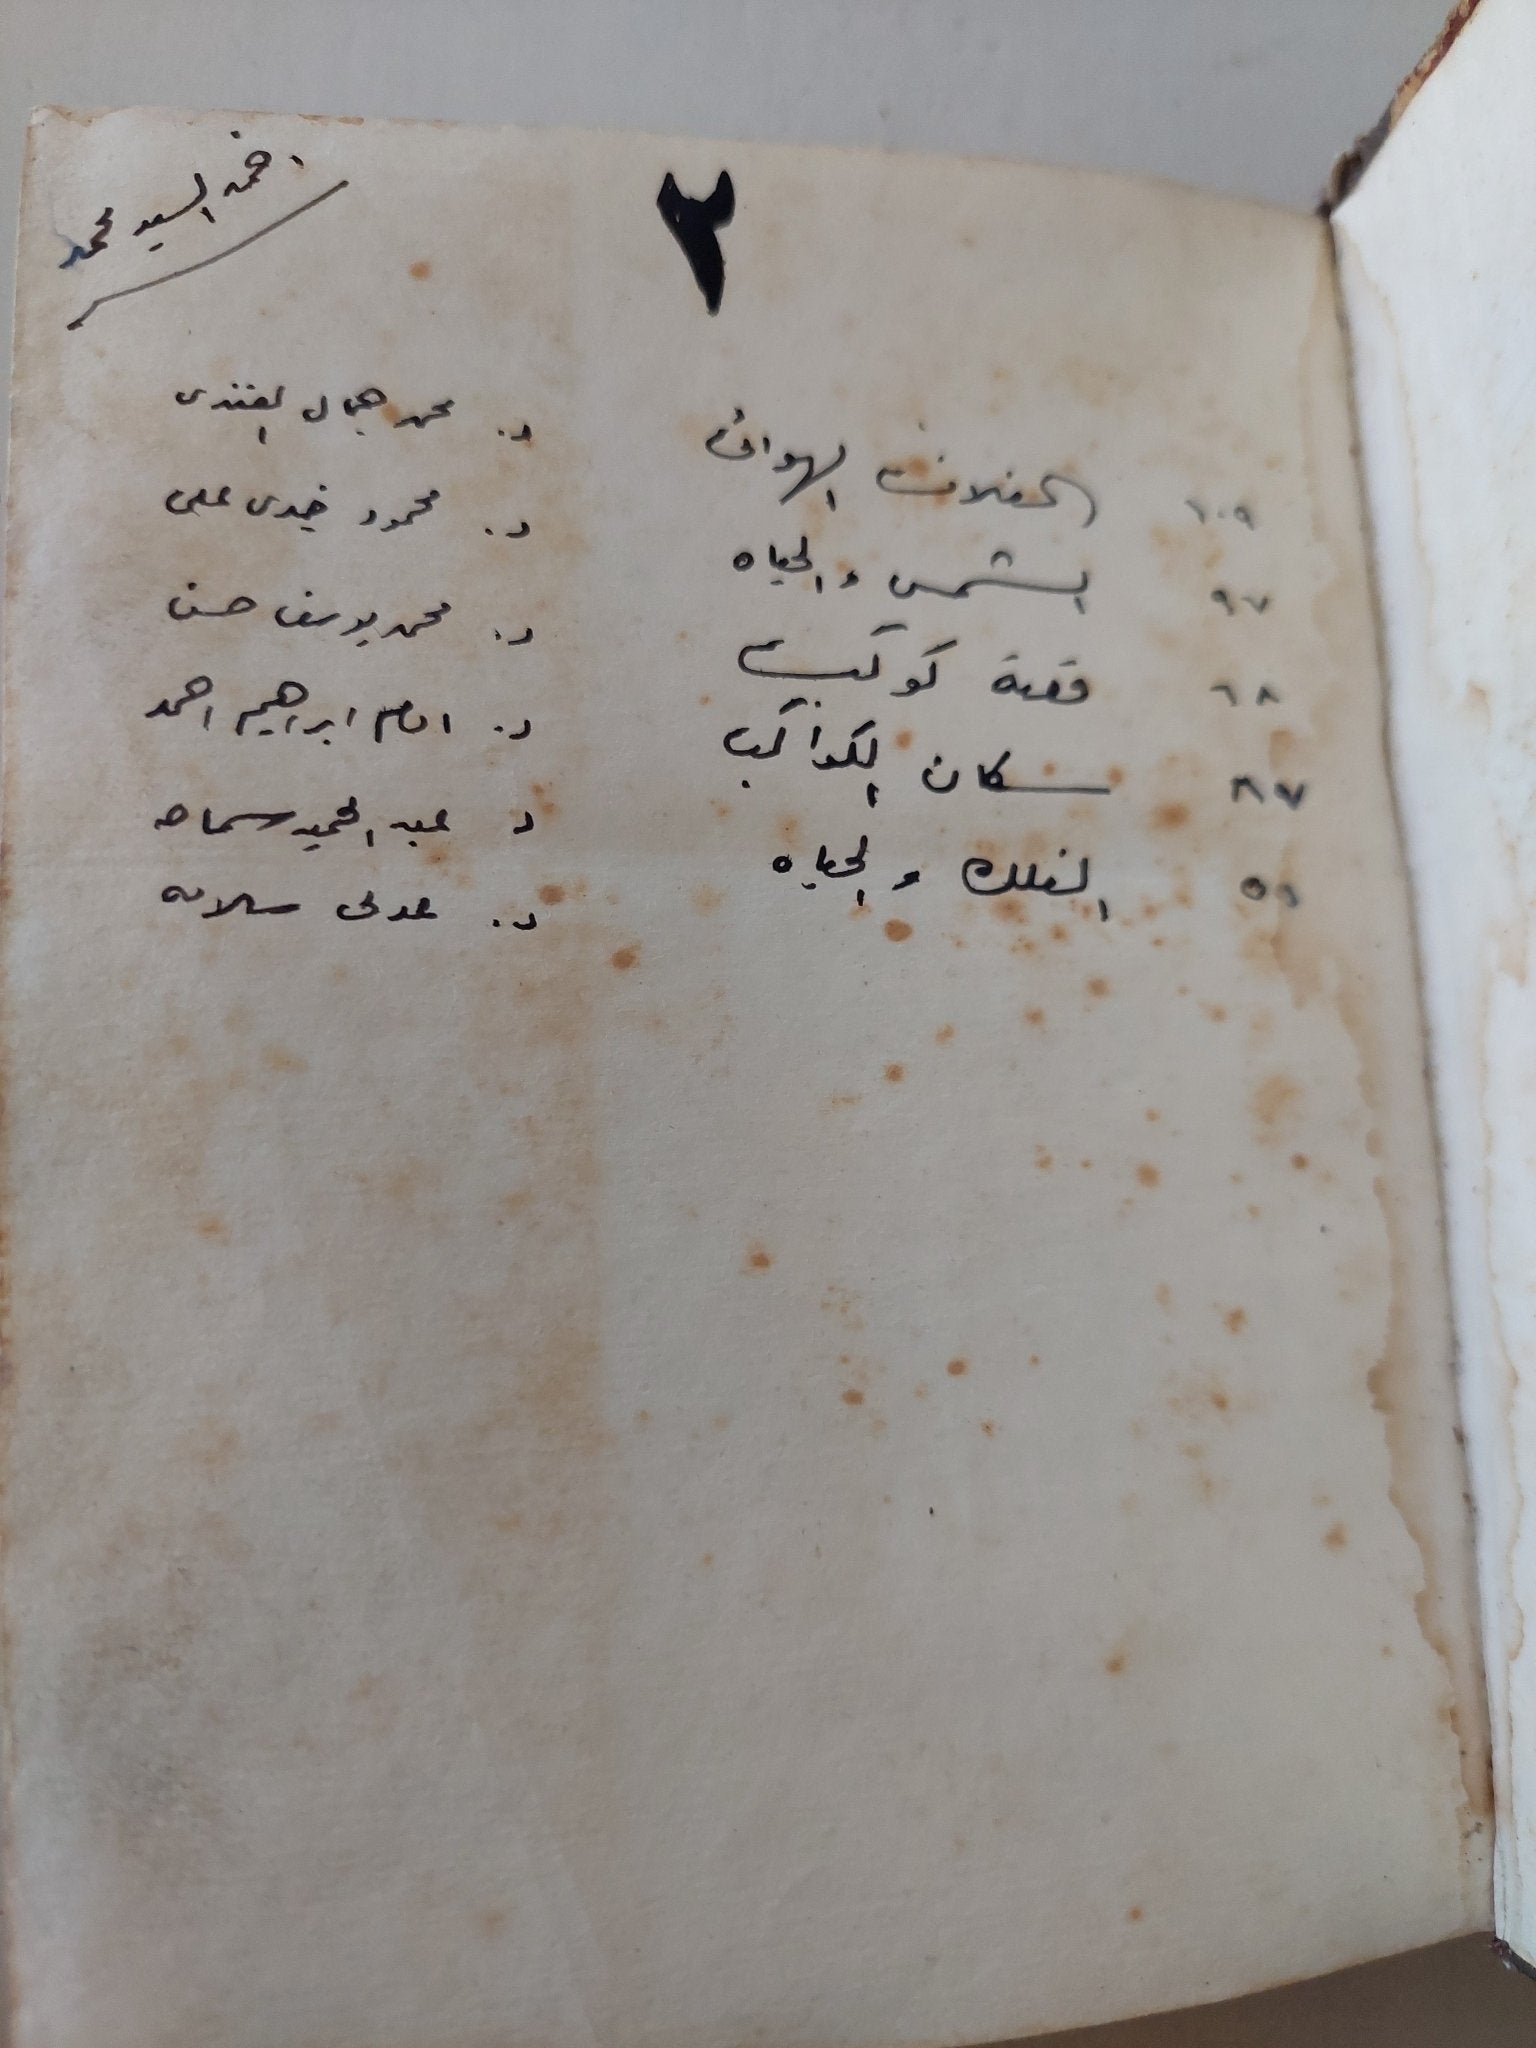 احمد السيد محمد
٢
١٠٩ الغلاف الهوائى د. محمد جمال الفندى
٩٧ الشمس والحياه د. محمود خيرى على
٦٨ قصة كوكب د. محمد يوسف حسن
٨٧ سكان الكواكب د. امام ابراهيم احمد
٥٥ الفلك والحياه د عبد الحميد سماحه
د. عدلى سلامه